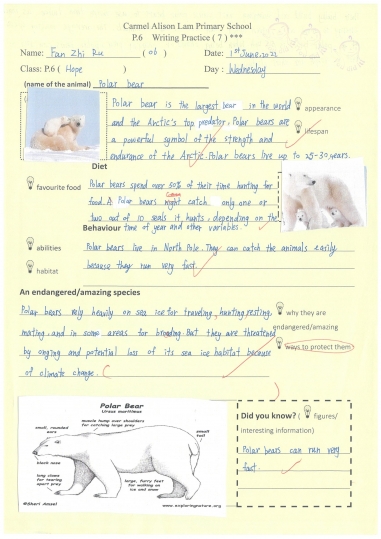 Carmel Alison Lam Primary School
P.6 Writing Practice ( 7 ) ***
Name: Fan Zhi Ru ( 06 ) Date: 1st June, 2022
Class: P.6 ( Hope ) Day : Wednesday
(name of the animal) Polar bear
Polar bear is the largest bear in the world
and the Arctic's top predator. Polar bears are
a powerful symbol of the strength and
endurance of the Arctic. Polar bears live up to 25-30 years.
appearance
lifespan
Diet
favourite food
Polar bears spend over 50% of their time hunting for
food. A Polar bears might catch only one or
two out of 10 seals it hunts, depending on the
Behaviour time of year and other variables.
abilities
habitat
Polar bears live in North Pole. They can catch the animals easily
because they run very fast.
An endangered/amazing species
Polar bears rely heavily on sea ice for traveling, hunting, resting,
mating and in some areas for But they are threatened
by onging and potential loss of its sea ice habitat because
of climate change.
why they are
endangered/amazing
ways to protect them
Polar Bear
Ursus maritimus
small, rounded
ears
muscle hump over shoulders
for catching large prey
small
tail
black nose
long claws for
tearing
apart prey
large, furry feet
for walking on
ice and snow
©Sheri Amsel
www.exploringnature.org
Did you know? ( figures/
interesting information)
Polar bears can run very
fast.